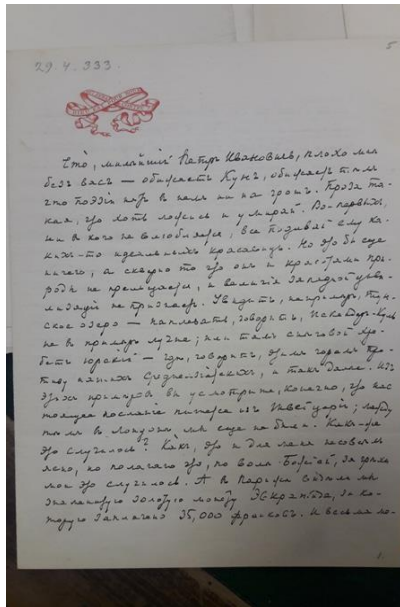 29.4.333.
5
Что, милѣйшій Петръ Ивановичъ, плохо мнѣ
безъ васъ — обижаетъ Кунъ, обижаетъ тѣмъ
что поэзіи нѣтъ въ немъ ни на грошъ. Проза та-
кая, что хоть ложись и умирай. Во-первыхъ,
ни въ кого не влюбляется, все подавай ему ка-
кихъ-то идеальныхъ красавицъ. Но это бы еще
ничего, а скверно то что онъ и красотами при-
роды не прельщается, и величія западной циви-
лизаціи не признаетъ. Увидитъ, напримѣръ, Тун-
ское озеро — наплевать, говоритъ, Искандеръ-Куль
не въ примѣръ лучше; или тамъ снѣговой хре-
бетъ Юрскій — гдѣ, говоритъ, этимъ горамъ про-
тиву нашихъ Среднеазіатскихъ, и такъ далѣе. Изъ
этихъ примѣровъ вы усмотрите, конечно, что нас-
тоящее посланіе пишется изъ Швейцаріи;
въ Лондонѣ мы еще не были. Какъ же
это случилось? Какъ, это и для меня несовсѣмъ
ясно, но полагаю что, по волѣ Божіей, за грѣхи
мои это случилось. А въ Парижѣ видѣли мы
знаменитую золотую монету Эвкратида, за ко-
торую заплачено 35,000 франковъ. И весьма